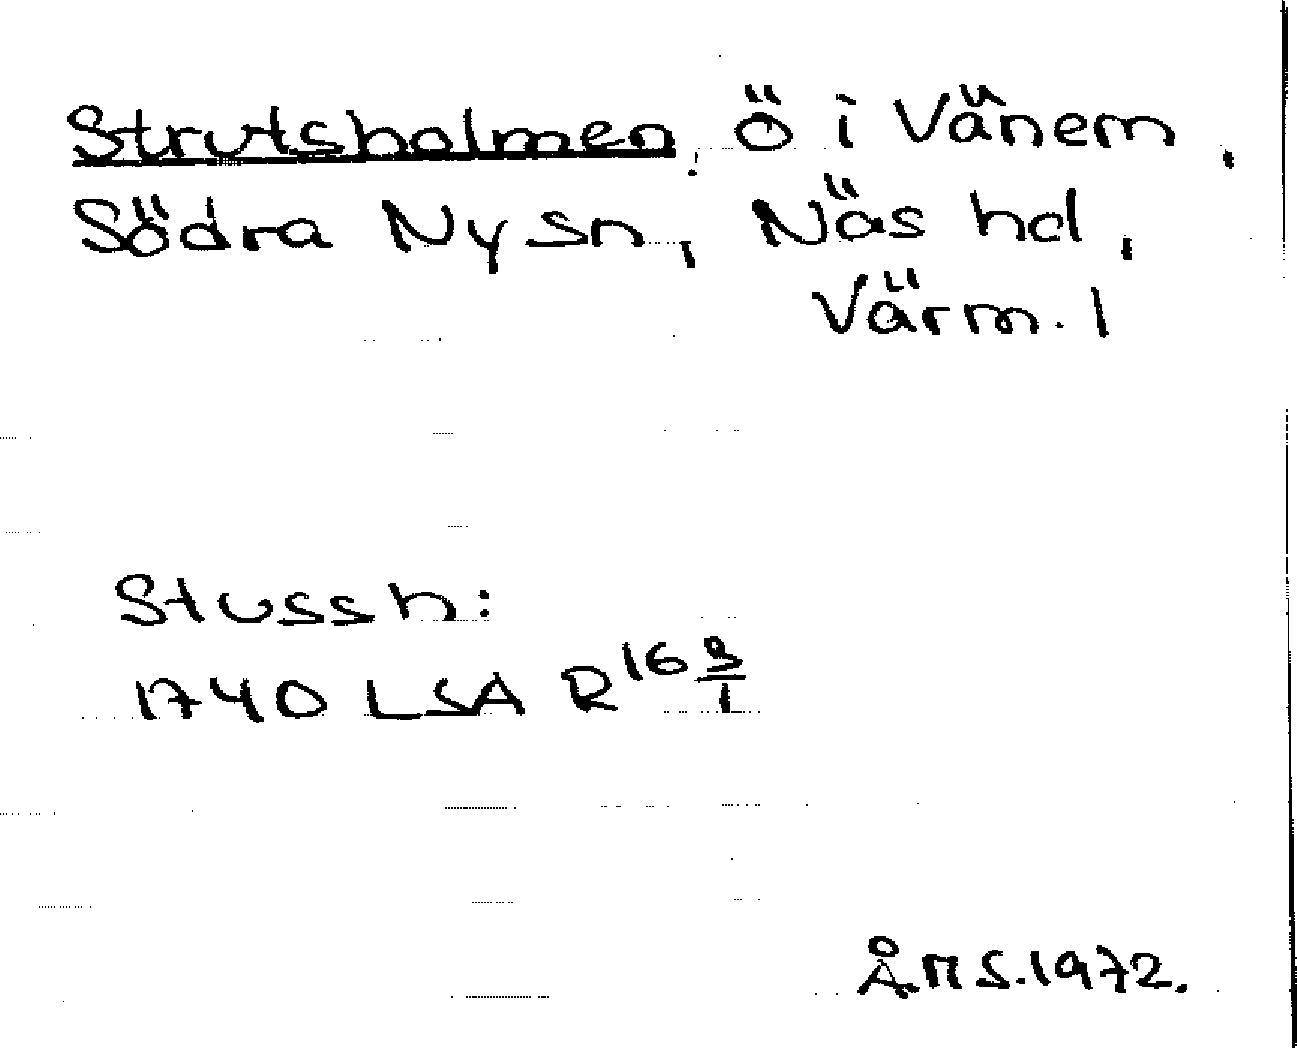 Strutsholmen, Ö i Vänern,
Södra Ny sn, Näs hd,
Värm. l
Stussh:
1740 LSA R16 3/1
ÅMS.1972.